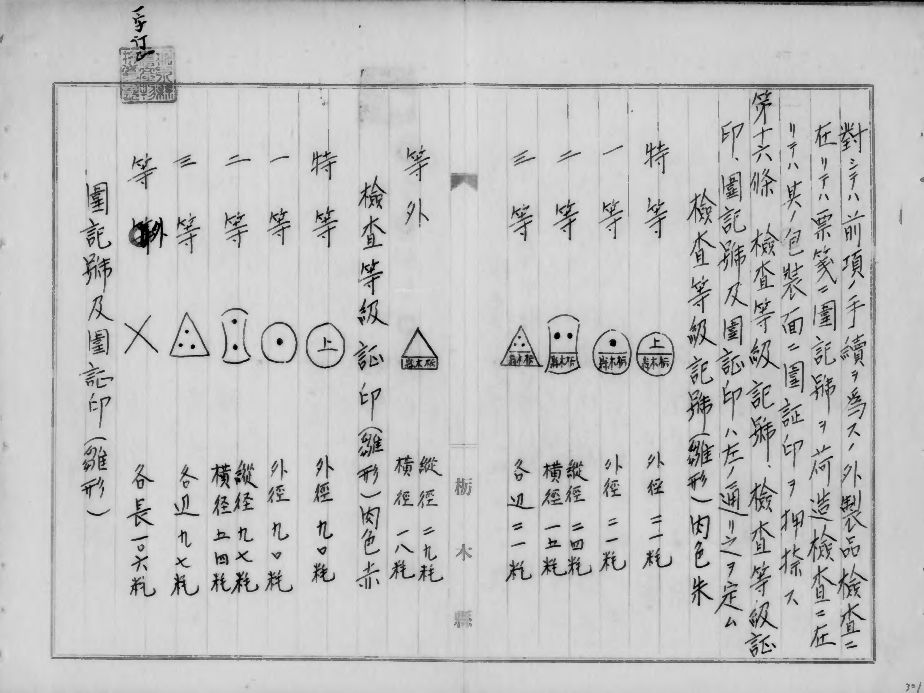 對シテハ前項ノ手續ヲ爲スノ外製品檢査ニ
在リテハ票箋ニ圍記號ヲ荷造檢査ニ在
リテハ其ノ包裝面ニ圍証印ヲ押捺ス
第十六條 檢査等級記號、檢査等級証
印、圍記號及圍証印ハ左ノ通リ之ヲ定ム
檢査等級記號(雛形)肉色朱
特等 上 栃木縣 外徑 二一粍
一等 栃木縣 外徑 二一粍
二等 栃木縣 縱徑 二四粍
横徑 一五粍
三等 栃木縣 各辺 二一粍
栃木縣
等外 栃木縣 縱徑 二九粍
横徑 一八粍
檢査等級証印(雛形)肉色赤
特等 上 外徑 九〇粍
一等 外徑 九〇粍
二等 縱径 九七粍
横径 五四粍
三等 各辺 九七粍
等外 各長 一〇六粍
圍記號及圍証印(雛形)